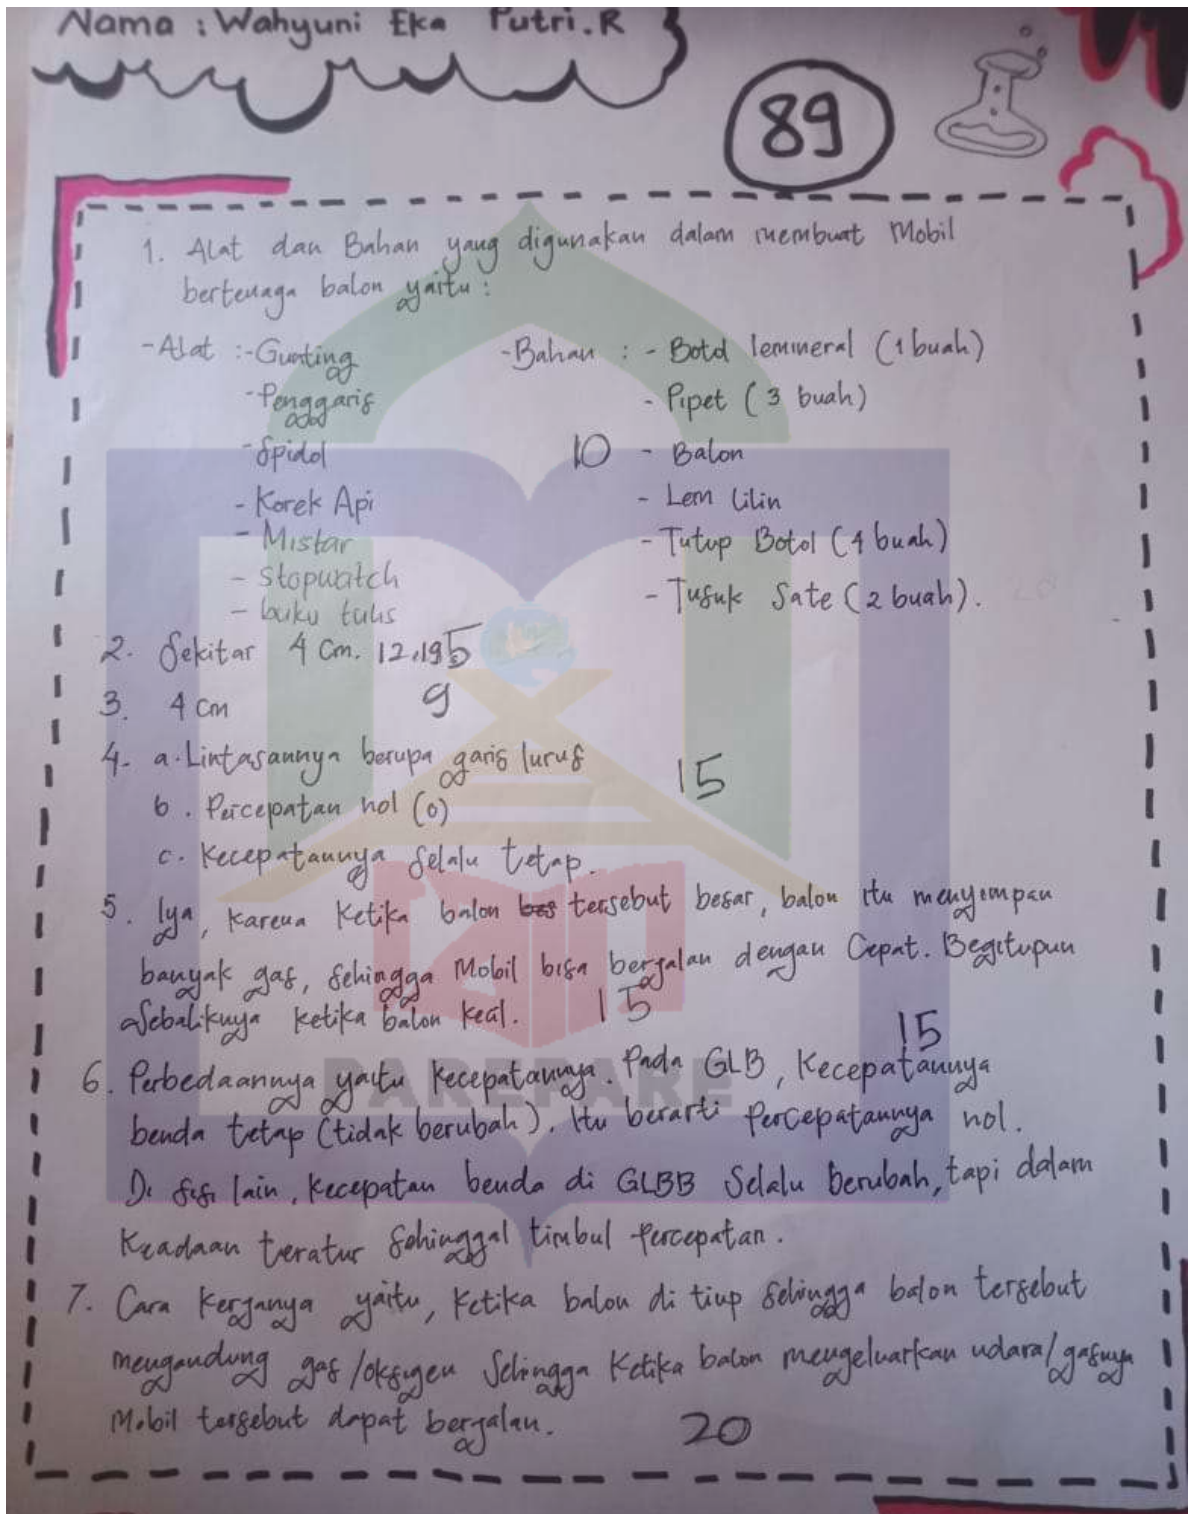 Nama : Wahyuni Eka Putri.R
89
1. Alat dan Bahan yang digunakan dalam membuat Mobil
bertenaga balon yaitu :
-Alat : -Gunting
-Penggaris
-Spidol
- Korek Api
- Mistar
- Stopwatch
- buku tulis
-Bahan : - Botol lemineral (1 buah)
- Pipet (3 buah)
10 - Balon
- Lem lilin
- Tutup Botol (4 buah)
- Tusuk Sate (2 buah).
2. Sekitar 4 Cm. 12,19 5
3. 4 Cm 9
4. a. Lintasannya berupa garis lurus 15
b. Percepatan nol (0)
c. Kecepatannya selalu tetap.
5. Iya, karena ketika balon bes tersebut besar, balon itu menyimpan
banyak gas, sehingga Mobil bisa berjalan dengan Cepat. Begitupun
Sebaliknya ketika balon kecil. 15
15
6. Perbedaannya yaitu kecepatannya. Pada GLB, Kecepatannya
benda tetap (tidak berubah). Itu berarti percepatannya nol.
Di sisi lain, kecepatan benda di GLBB Selalu berubah, tapi dalam
Keadaan teratur sehinggal timbul percepatan.
7. Cara kerjanya yaitu, ketika balon di tiup sehingga balon tersebut
mengandung gas /oksigen Sehingga Ketika balon mengeluarkan udara/gasnya
Mobil tersebut dapat berjalan. 20
PAREPARE